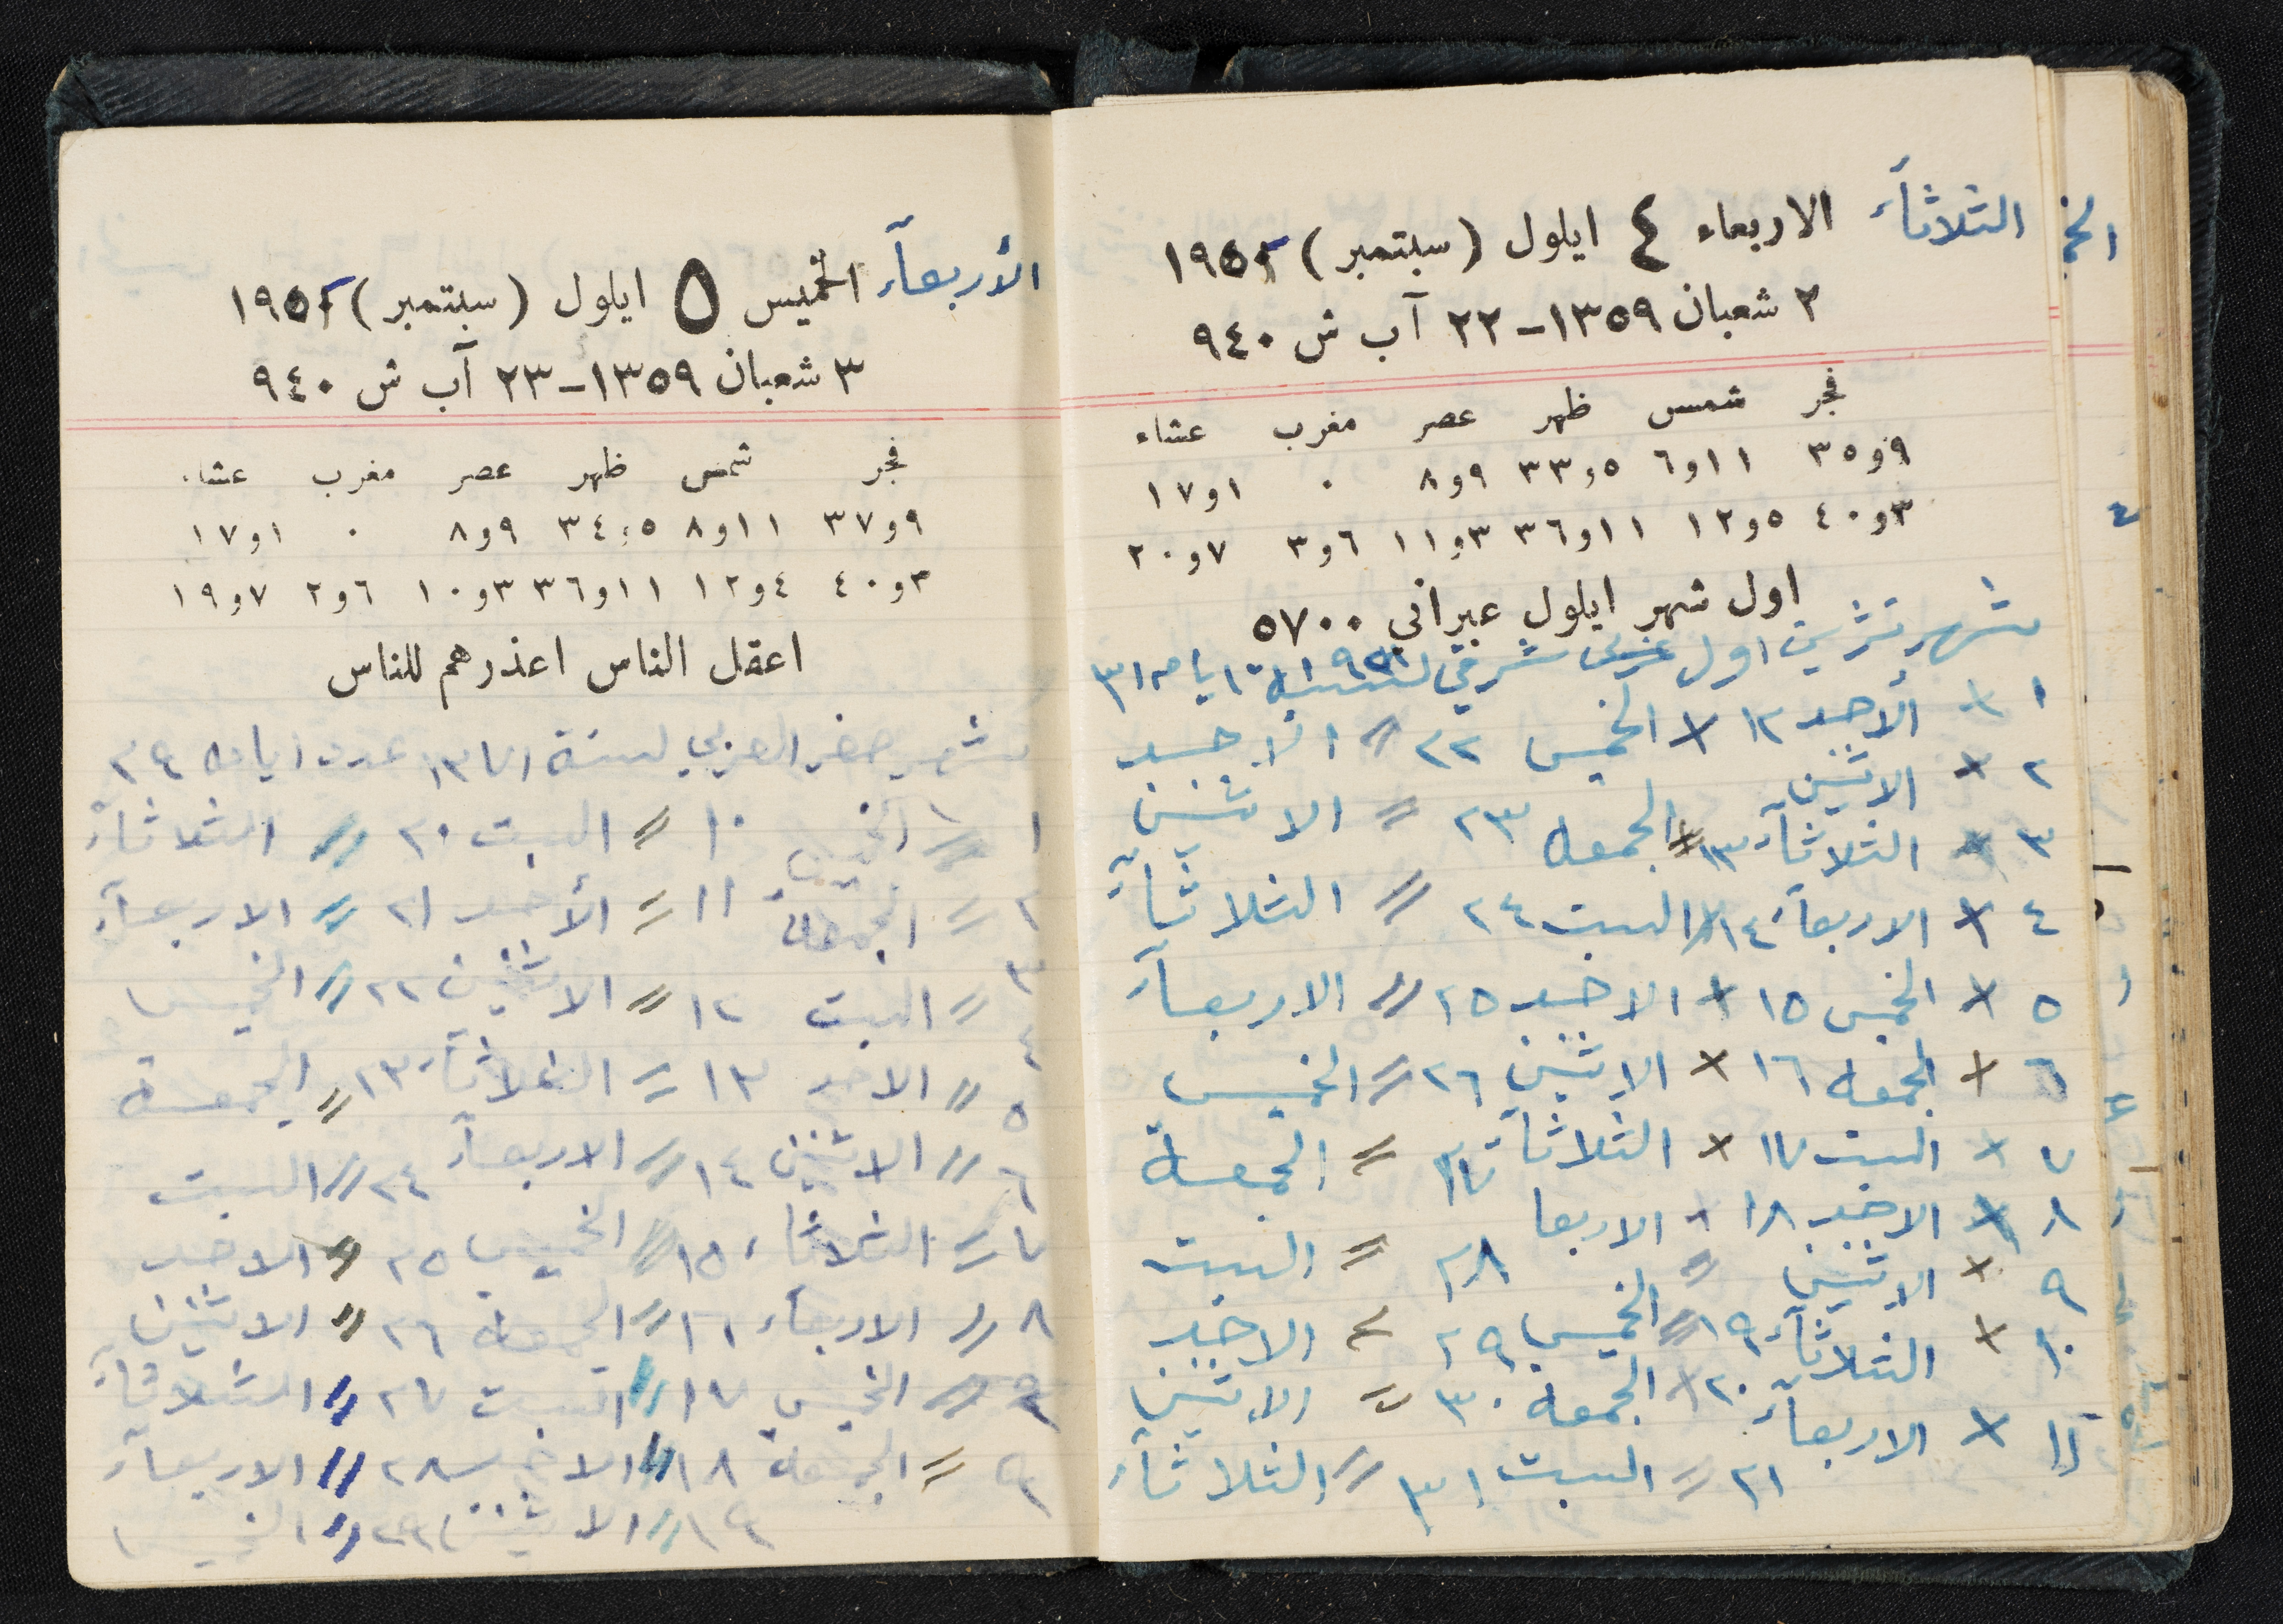 الثلاثآء الاربعاء ٤ ايلول (سبتمبر) ١٩٥١
٢ شعبان ١٣٥٩-٢٢ آب ش ٩٤٠
فجر شمس ظهر عصر مغرب عشاء
٩و٣٥ ١١و٦ ٥و٣٣ ٩و٨ ٠ ١و١٧
٣و٤٠ ٥و١٢ ١١و٣٦ ٣و١١ ٦و٣ ٧و٢٠
اول شهر ايلول عبراني ٥٧٠٠
شهر تشرين اول شرقي لسنة ايامه ٣١
١ × الأحد ١٢ × الخميس ٢٢ = الأحد
٢ × الاثنين
٣ × الثلاثآء ١٣ × الجمعه ٢٣ = الاثنين
٤ × الاربعآء ١٤ × السبت ٢٤ = الثلاثآء
٥ × الخميس ١٥ × الاحد ٢٥ = الاربعآء
٦ × الجمعه ١٦ × الاثنين ٢٦ = الخميس
٧ × السبت ١٧ × الثلاثآء ٢٧ = الجمعة
٨ × الاحد ١٨ × الاربعا ٢٨ = السبت
٩ × الاثنين
١٠ × الثلاثآء ١٩ = الخميس ٢٩ = الاحد
١١ × الاربعآء ٢٠ × الجمعه ٣٠ = الاثنين
٢١ = السبت ٣١ = الثلاثآء
الأربعآء الخميس ٥ ايلول (سبتمبر) ١٩٥١
٣ شعبان ١٣٥٩-٢٣ آب ش ٩٤٠
فجر شمس ظهر عصر مغرب عشاء
٩و٣٧ ١١و٨ ٥و٣٤ ٩و٨ ٠ ١و١٧
٣و٤٠ ٤و١٢ ١١و٣٦ ٣و١٠ ٦و٢ ٧و١٩
اعقل الناس اعذرهم للناس
شهر صفر العربي لسنة ١٣٧١ عدد ايامه ٢٩
١ = الخميس ١٠ = السبت ٢٠ = الثلاثآء
٢ = الجمعة ١١ = الأحد ٢١ = الاربعآء
٣ = السبت ١٢ = الاثنين ٢٢ = الخميس
٤ = الاحد ١٣ = الثلاثآء ٢٣ = الجمعة
٥ = الاثنين ١٤ = الاربعآء ٢٤ = السبت
٦ = الثلاثاء ١٥ = الخميس ٢٥ = الاحد
٧ = الاربعآء ١٦ = الجمعة ٢٦ = الاثنين
٨ = الخميس ١٧ = السبت ٢٧ = الثلاثآء
٩ = الجمعة ١٨ = الاحد ٢٨ = الاربعآء
١٩ = الاثنين ٢٩ = الخميس